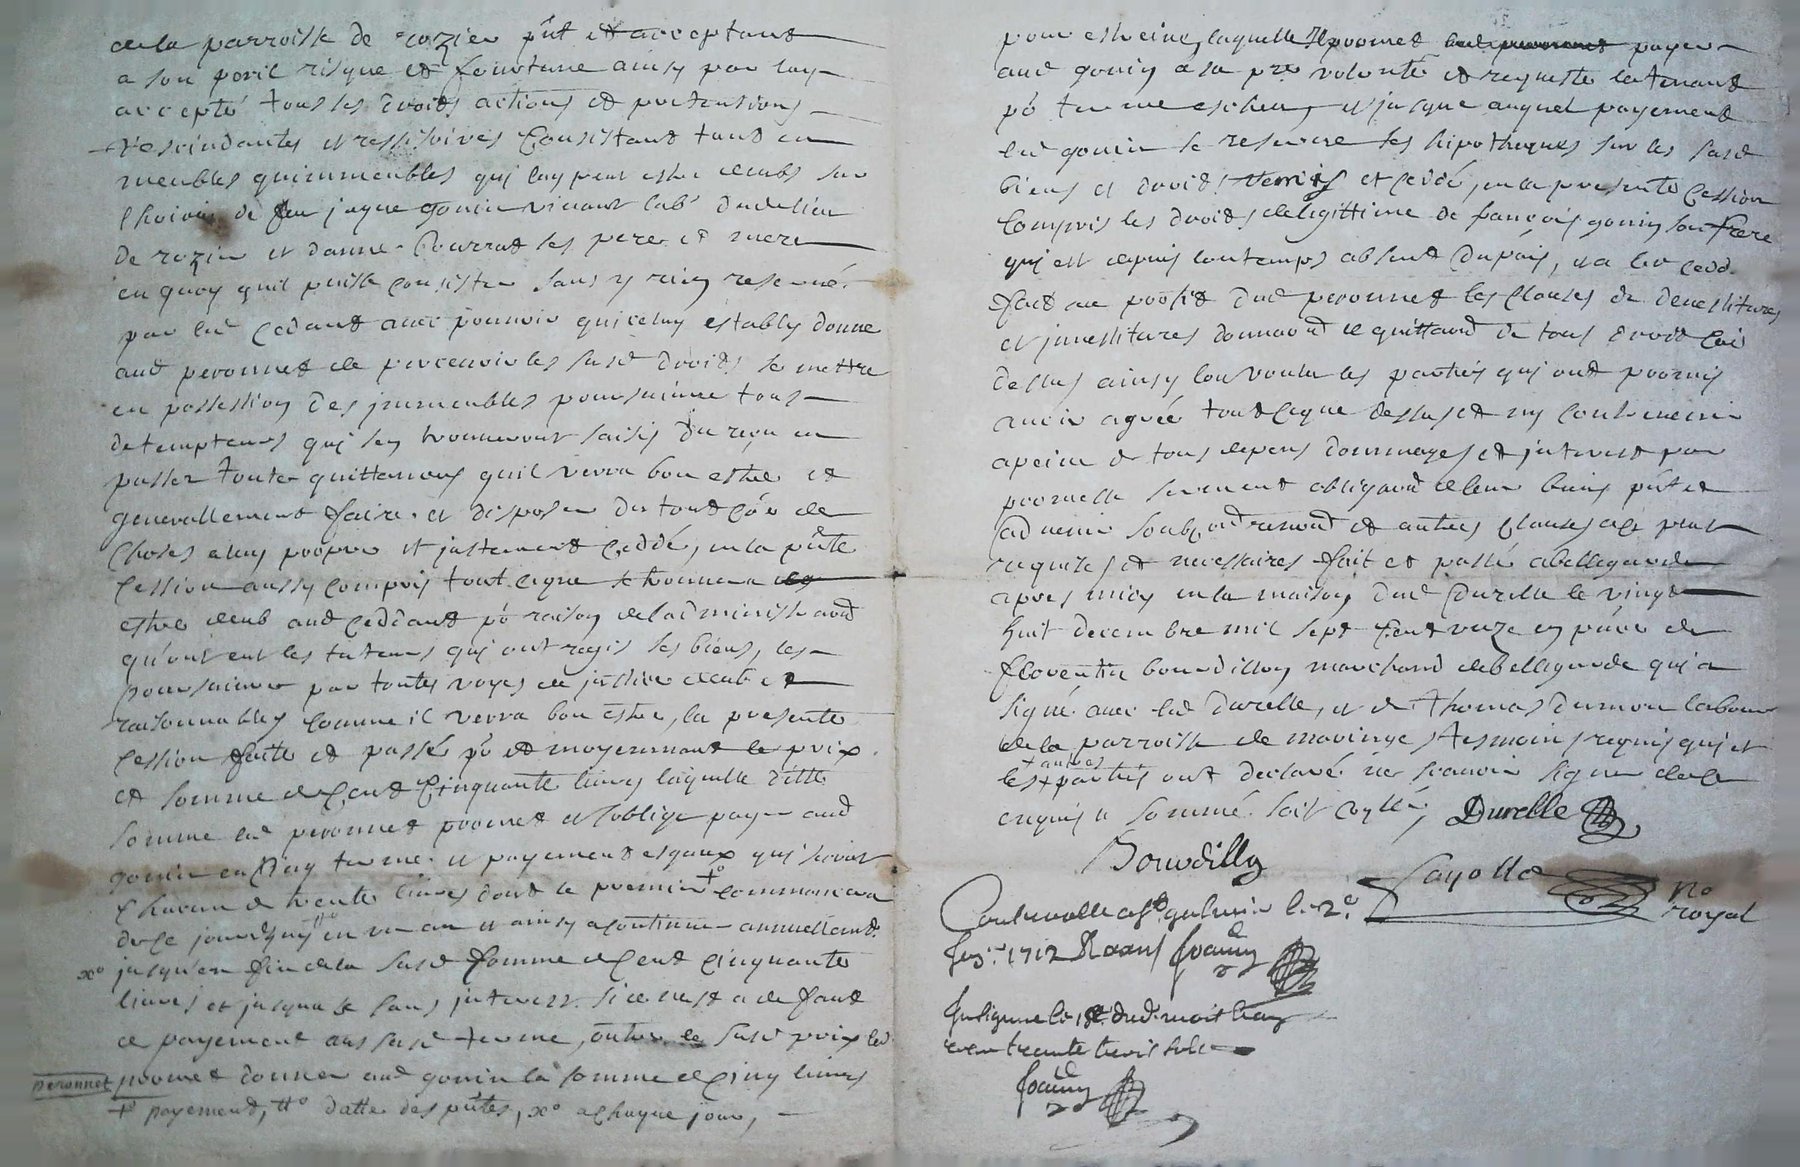 de la parroisse de rozier pnt et acceptant
a son peril risque et fourtune ainsy par luy
accepté tous les droids actions et pretensions
rescindantes et rescisoires consistant tant en
meubles qu'immeubles qui luy peut estre deubs sur
l'hoirie de feu jaque gonin vivant labr dud lieu
de rozier et danne Courrat ses pere et mere
en quoy quil puisse consister sans y rien reservé
par led cedant avec pouvoir quiceluy estably donne
aud peronnet de percevoir les susd droids se mettre
en possession des immeubles poursuivre tous
detempteurs qui sen trouveront saisis du reçu en
passer toutes quittances quil verra bon estre et
generallement faire et disposer du tout côe de
choses a luy propres et justement ceddé, en la pnte
cession aussy compris tout ceque se trouvera
estre deub aud ceddant po raison de ladministraon
qu'ont eut les tuteurs qui ont regis ses biens, les
poursuivre par toutes voyes de justice deub et
raisonnables comme il verra bon estre, la presente
cession faite et passé po et moyennant le prix
et somme de cent cinquante livres laquelle ditte
somme led peronnet promet et soblige payer aud
gonin en cinq terme et payement esgaux qui seront
chacun de trente livres dont le premier +o commancera
de ce jourdhuy #o en un an et ainsy a continuer annuellemt
xo jusqu'en fin de la susd somme de cent cinquante
livres et jusqua ce sans interest si ce nest a defaut
de payement aus susd terme, outre le susd prix led
peronnet promet donner aud gonin la somme de cinq livres
+o payement, #o datte des pntes, xo a chaque jour,
pour estreine, laquelle il promet payer
aud gonin a sa pre volonté et requeste le tenant
po terme escheu, et jusque auquel payement
led gonin se reserve ses hipotheques sur les susd
biens et droids remis et ceddé, en la presente cession
compris les droids de legittime de françois gonin son frere
qui est depuis lontemps absent du pais, et a led cedd.
fait au profit dud peronnet les clauses de devestitures
et investitures donnaond et quittaond de tous droid cy
dessus ainsy lon voulu les parties qui ont promis
avoir agréé tout ceque dessus et ny contrevenir
a peine de tous depens dommages et interest par
leur serment obligaond de leur biens pnt et
advenir soubz renond et autres clauses a ce
requises et necessaires fait et passé a bellegarde
apres midy en la maison dud Durelle le vingt
huit decembre mil sept cent unze en pnce de
floventin bourdillon marchand de bellegarde qui a
signé avec led durelle, et de thomas dumon labour
de la parroisse de maringe, tesmoin requis qui et
les + autres parties ont declaré ne scavoir signer de ce
enquis et sommé soit coyllé, Durelle
Bourdillon
Cayotte no royal
Contrerolle a St galmier le 2e
Janv. 1712 Reçu
Insigune le 18e dud. mois
recu trante trois sols